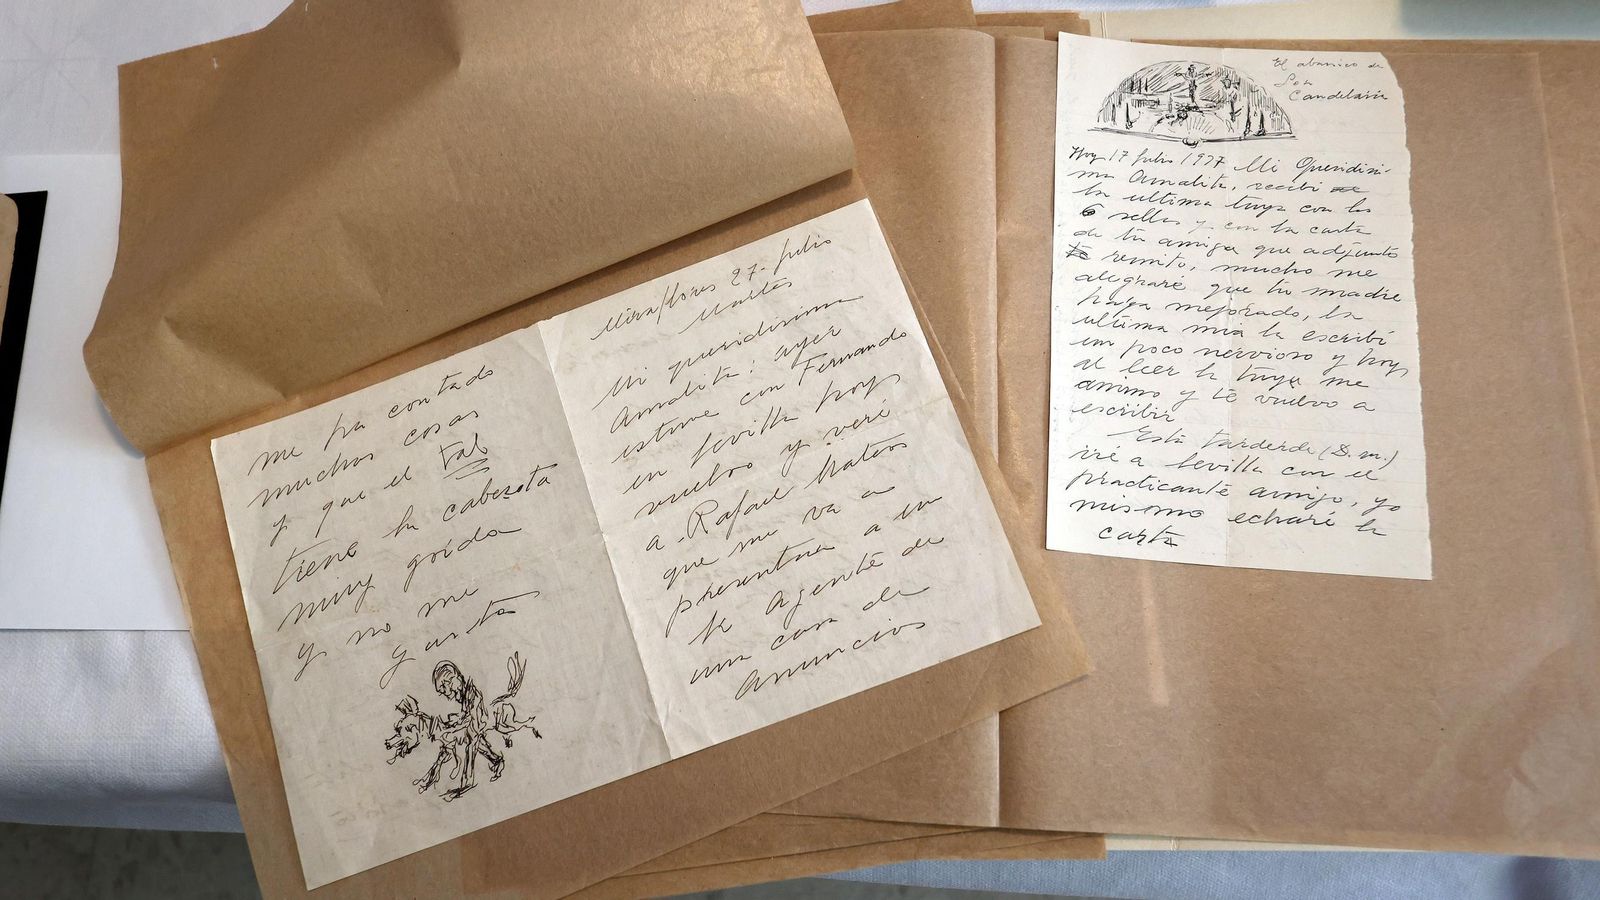 me ha contado
muchas cosas
y que el tal
tiene la cabezota
muy gorda
y no me
gusta
Miraflores 27-Julio
Martes
Mi queridisima
Amalita: ayer
estuve con Fernando
en Sevilla hoy
vuelvo y veré
a Rafael Mateos
que me va a
presentar a un
agente de
una casa de
anuncios
El abanico de
Candelaria
Hoy 17 Julio 1937 Mi Queridisi-
ma Amalita, recibi
la ultima tuya con los
6 sellos y con la carta
de tu amiga que adjunto
te remito, mucho me
alegraré que tu madre
haya mejorado, la
ultima mia la escribí
un poco nervioso y hoy,
al leer la tuya me
animo y te vuelvo a
escribir
Esta tarde (D. m.)
iré a Sevilla con el
practicante amigo, yo
mismo echaré la
carta